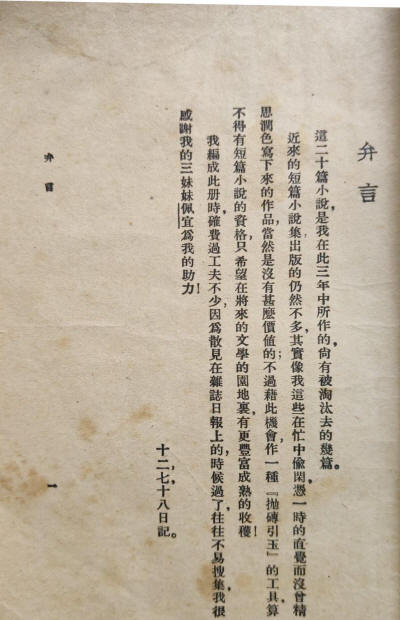 弁言
這二十篇小說，是我在此三年中所作的，尙有被淘汰去的幾篇。
近來的短篇小說集出版的仍然不多，其實像我這些在忙中偸閑，憑一時的直覺而沒曾精
思潤色寫下來的作品，當然是沒有甚麼價値的；不過藉此機會，作一種『抛磚引玉』的工具，算
不得有短篇小說的資格，只希望在將來的文學的園地裏，有更豐富成熟的收穫！
我編成此册時，確費過工夫不少，因爲散見在雜誌日報上的，時候過了，往往不易搜集，我很
感謝我的三妹妹佩宜爲我的助力！
十二，七，十八日記。
弁言
一